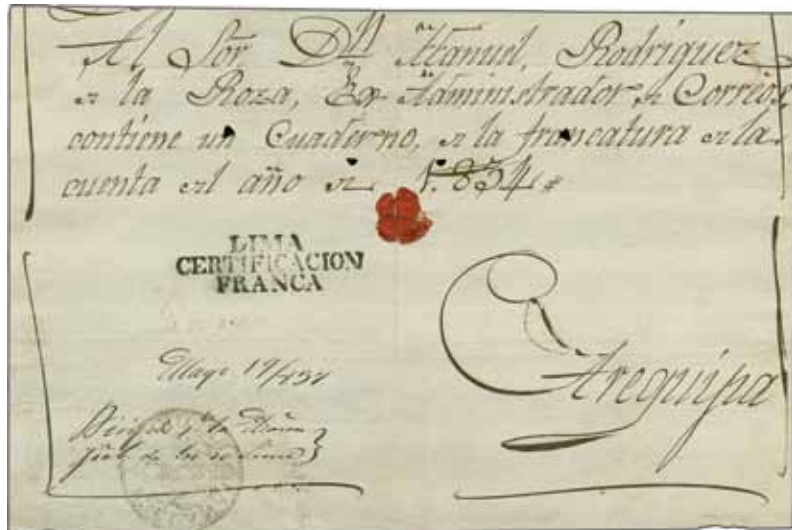 Al Sor Dn Manuel Rodriguez
de la Roza, Ex Administrador de Correos,
contiene un Cuaderno, de la francatura de la
cuenta del año de 1.834
LIMA
CERTIFICACION
FRANCA
Arequipa
Mayo 19/